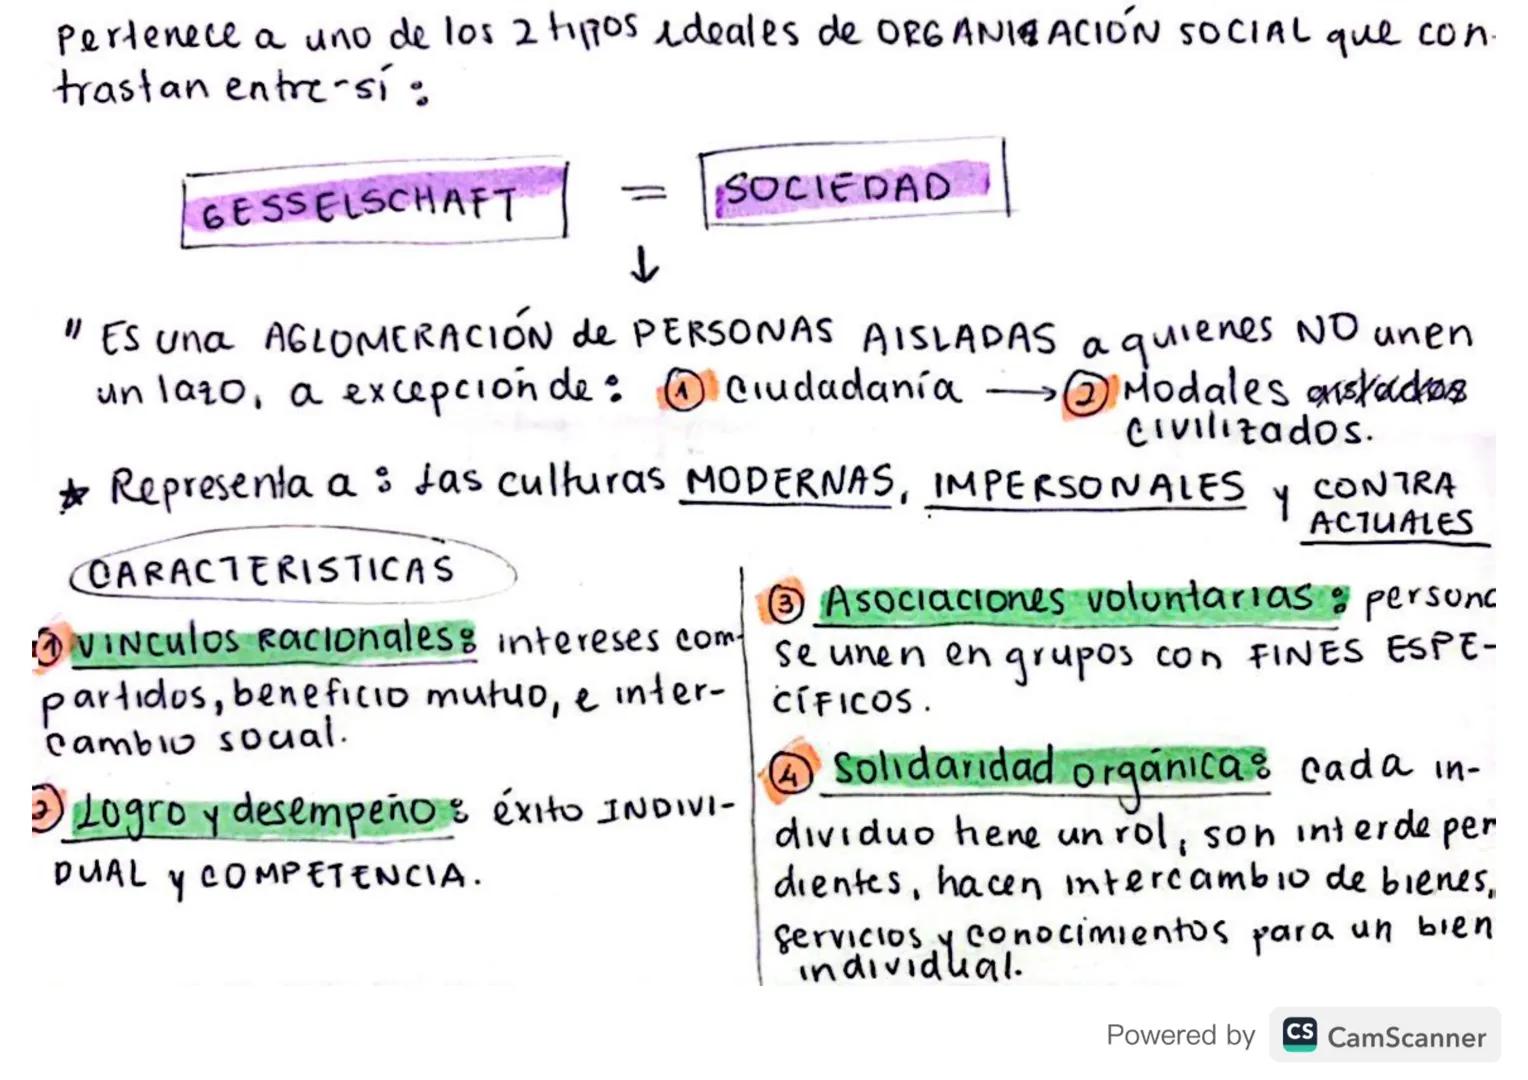 Pertenece a uno de los 2 tipos ideales de ORGANIZACIÓN SOCIAL que con-
trastan entre-sí:
GESSELSCHAFT = SOCIEDAD
↓
" ES una AGLOMERACIÓN de PERSONAS AISLADAS a quienes NO unen
un lazo, a excepción de: ① Ciudadanía → ② Modales
civilizados.
★ Representa a: Las culturas MODERNAS, IMPERSONALES y CONTRA
ACTUALES
CARACTERISTICAS
① VINCULOS RACIONALES: intereses com-
partidos, beneficio mutuo, e inter-
cambio social.
② Logro y desempeño: éxito INDIVI-
DUAL y COMPETENCIA.
③ Asociaciones voluntarias: persona
se unen en grupos con FINES ESPE-
CÍFICOS.
④ Solidaridad orgánica: cada in-
dividuo tiene un rol, son interdepen
dientes, hacen intercambio de bienes,
servicios y conocimientos para un bien
individual.
Powered by CS CamScanner